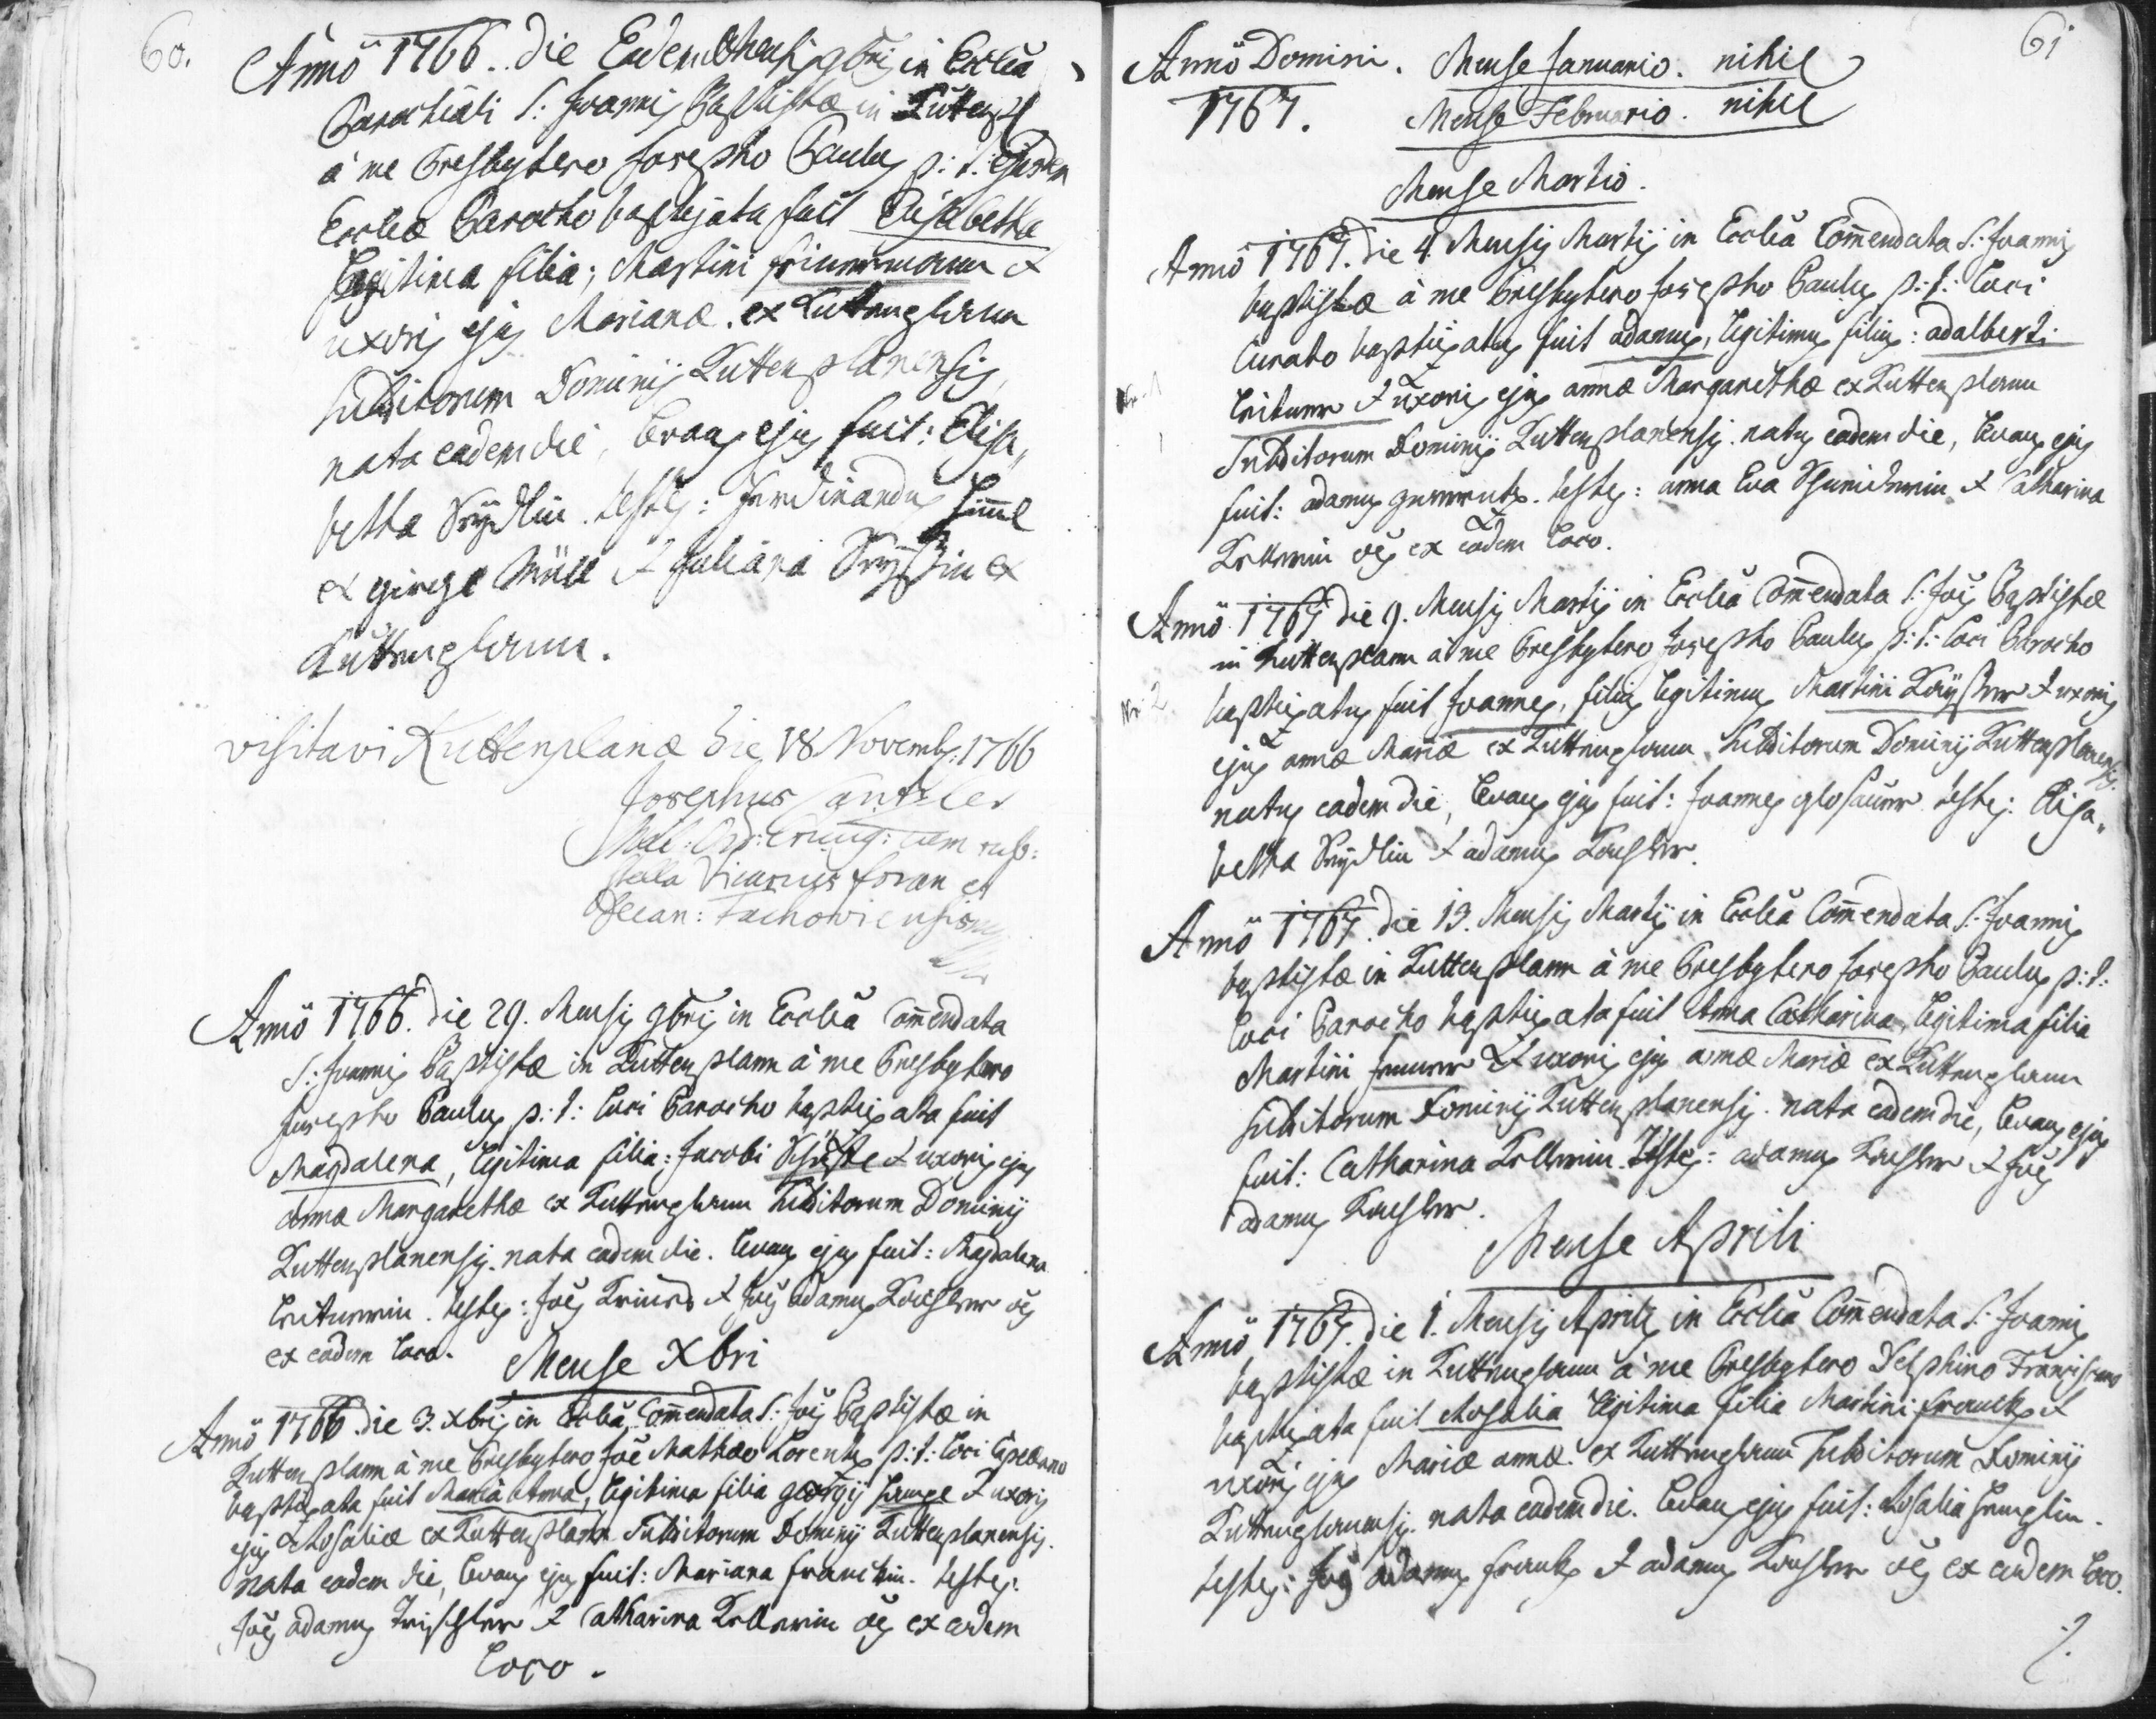 60.
Anno 1766. die Eadem Mensis 9bris in Ecclia
Parochiali S: Joannis Baptistae in Kuttenpl
à me Presbytero Josepho Paulus p: t: ejusdem
Eccliae Parocho baptizata fuit Elisabetha
legitima filia; Martini &
uxoris ejus Marianae. ex Kuttenplann
subditorum Dominij Kuttenplanensis,
nata eadem die, levans ejus fuit: Elisa„
betha Seydlin. testes: Ferdinandus Himl
ex Müll & Juliana ex
Kuttenplann.
visitavi Kuttenplanae die 18 Novembr: 1766
Josephus Cantzler
Vicarius foran et
Decan: Tachoviensis
Anno 1766. die 29. Mensis 9bris in Ecclia Comendata
S: Joannis Baptistae in Kuttenplann à me Presbytero
Josepho Paulus p: t: loci Parocho baptizata fuit
Magdalena, legitima filia: Jacobi & uxoris ejus
annae Margarethae ex Kuttenplann subditorum Dominij
Kuttenplanensis. nata eadem die. levans ejus fuit: Magdalena
testes: Joes & Joes Adamus oes
ex eodem loco.
Mense Xbri
Anno 1766 die 3. Xbris in Ecclia Comendata S: Jois Baptistae in
Kuttenplann à me Presbytero Joe Mathaeo Lorentz p: t: loci Capellano
baptizata fuit Maria Anna, legitima filia georgij Lange & uxoris
ejus Rosaliae ex Kuttenplann subditorum Dominij Kuttenplanensis.
nata eadem die, levans ejus fuit: Mariana Franckin. testes:
Joes adamus & Catharina oes ex eodem
loco.
61
Anno Domini. Mense Januario. nihil
1767. Mense Februario. nihil
Mense Martio.
Anno 1767. die 4 Mensis Martij in Ecclia Comendata S: Joannis
baptistae à me Presbytero Josepho Paulus p: t: loci
Curato baptizatus fuit adamus, legitimus filius: adalberti
Nr. 1
& uxoris ejus annae Margarethae ex Kuttenplann
Subditorum Dominij Kuttenplanensis. natus eadem die, levans ejus
fuit: adamus testes: anna Eva & Catharina
oes ex eodem loco.
Anno 1767 die 9. Mensis Martij in Ecclia Comendata S: Jois Baptistae
in Kuttenplann à me Presbytero Josepho Paulus p: t: loci Parocho
Nr. 2
baptizatus fuit Joannes, filius legitimus Martini & uxoris
ejus annae Mariae ex Kuttenplann subditorum Dominij Kuttenplanensis.
natus eadem die, levans ejus fuit: Joannes testes: Elisa„
betha Seydlin & adamus
Anno 1767. die 13. Mensis Martij in Ecclia Comendata S: Joannis
baptistae in Kuttenplann à me Presbytero Josepho Paulus p: t:
loci Parocho baptizata fuit Anna Catharina, legitima filia
Martini & uxoris ejus annae Mariae ex Kuttenplann
subditorum Dominij Kuttenplanensis. nata eadem die, levans ejus
fuit: Catharina testes: adamus & Joes
adamus
Mense Aprili
Anno 1767. die 1. Mensis Aprilis in Ecclia Comendata S: Joannis
baptistae in Kuttenplann à me Presbytero Delphino Franciscano
baptizata fuit Rosalia legitima filia Martini &
uxoris ejus Mariae annae. ex Kuttenplann subditorum Dominij
Kuttenplanensis. nata eadem die. levans ejus fuit: Rosalia
testes: Joes adamus & adamus oes ex eodem loco.